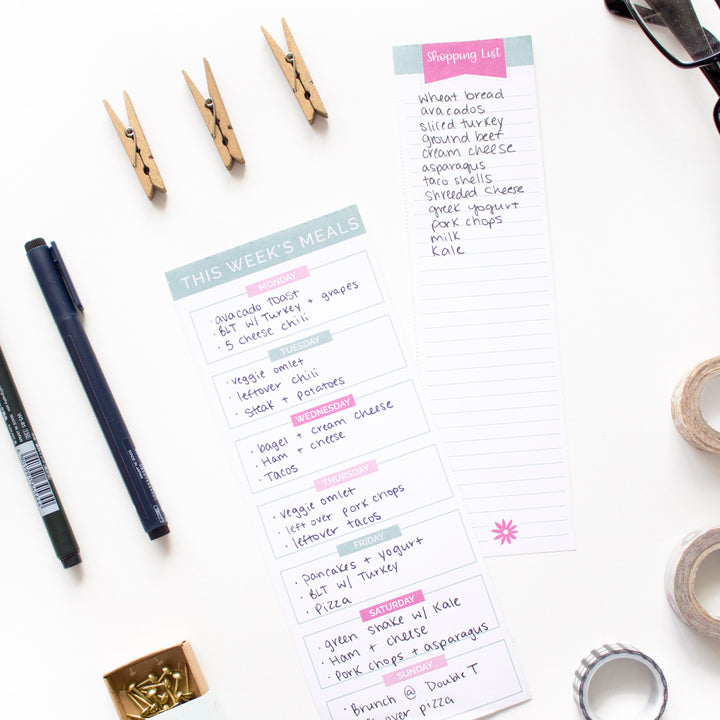 Shopping List
wheat bread
avacados
sliced turkey
ground beef
cream cheese
asparagus
taco shells
shreeded cheese
greek yogurt
pork chops
milk
Kale
THIS WEEK'S MEALS
MONDAY
· avacado toast
· BLT w/ Turkey + grapes
· 5 cheese chili
TUESDAY
· veggie omlet
· leftover chili
· steak + potatoes
WEDNESDAY
· bagel + cream cheese
· Ham + cheese
· Tacos
THURSDAY
· veggie omlet
· left over pork chops
· leftover tacos
FRIDAY
· pancakes + yogurt
· BLT w/ Turkey
· Pizza
SATURDAY
· green shake w/ Kale
· Ham + cheese
· Pork chops + asparagus
SUNDAY
· Brunch @ Double T
over pizza